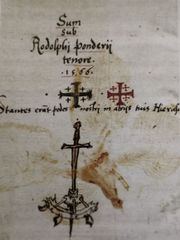 Sum
sub
Rodolphi Ponderii
tenore.
.1566.
Stantes erãt pedes nostri in atrijs tuis Hieruſa